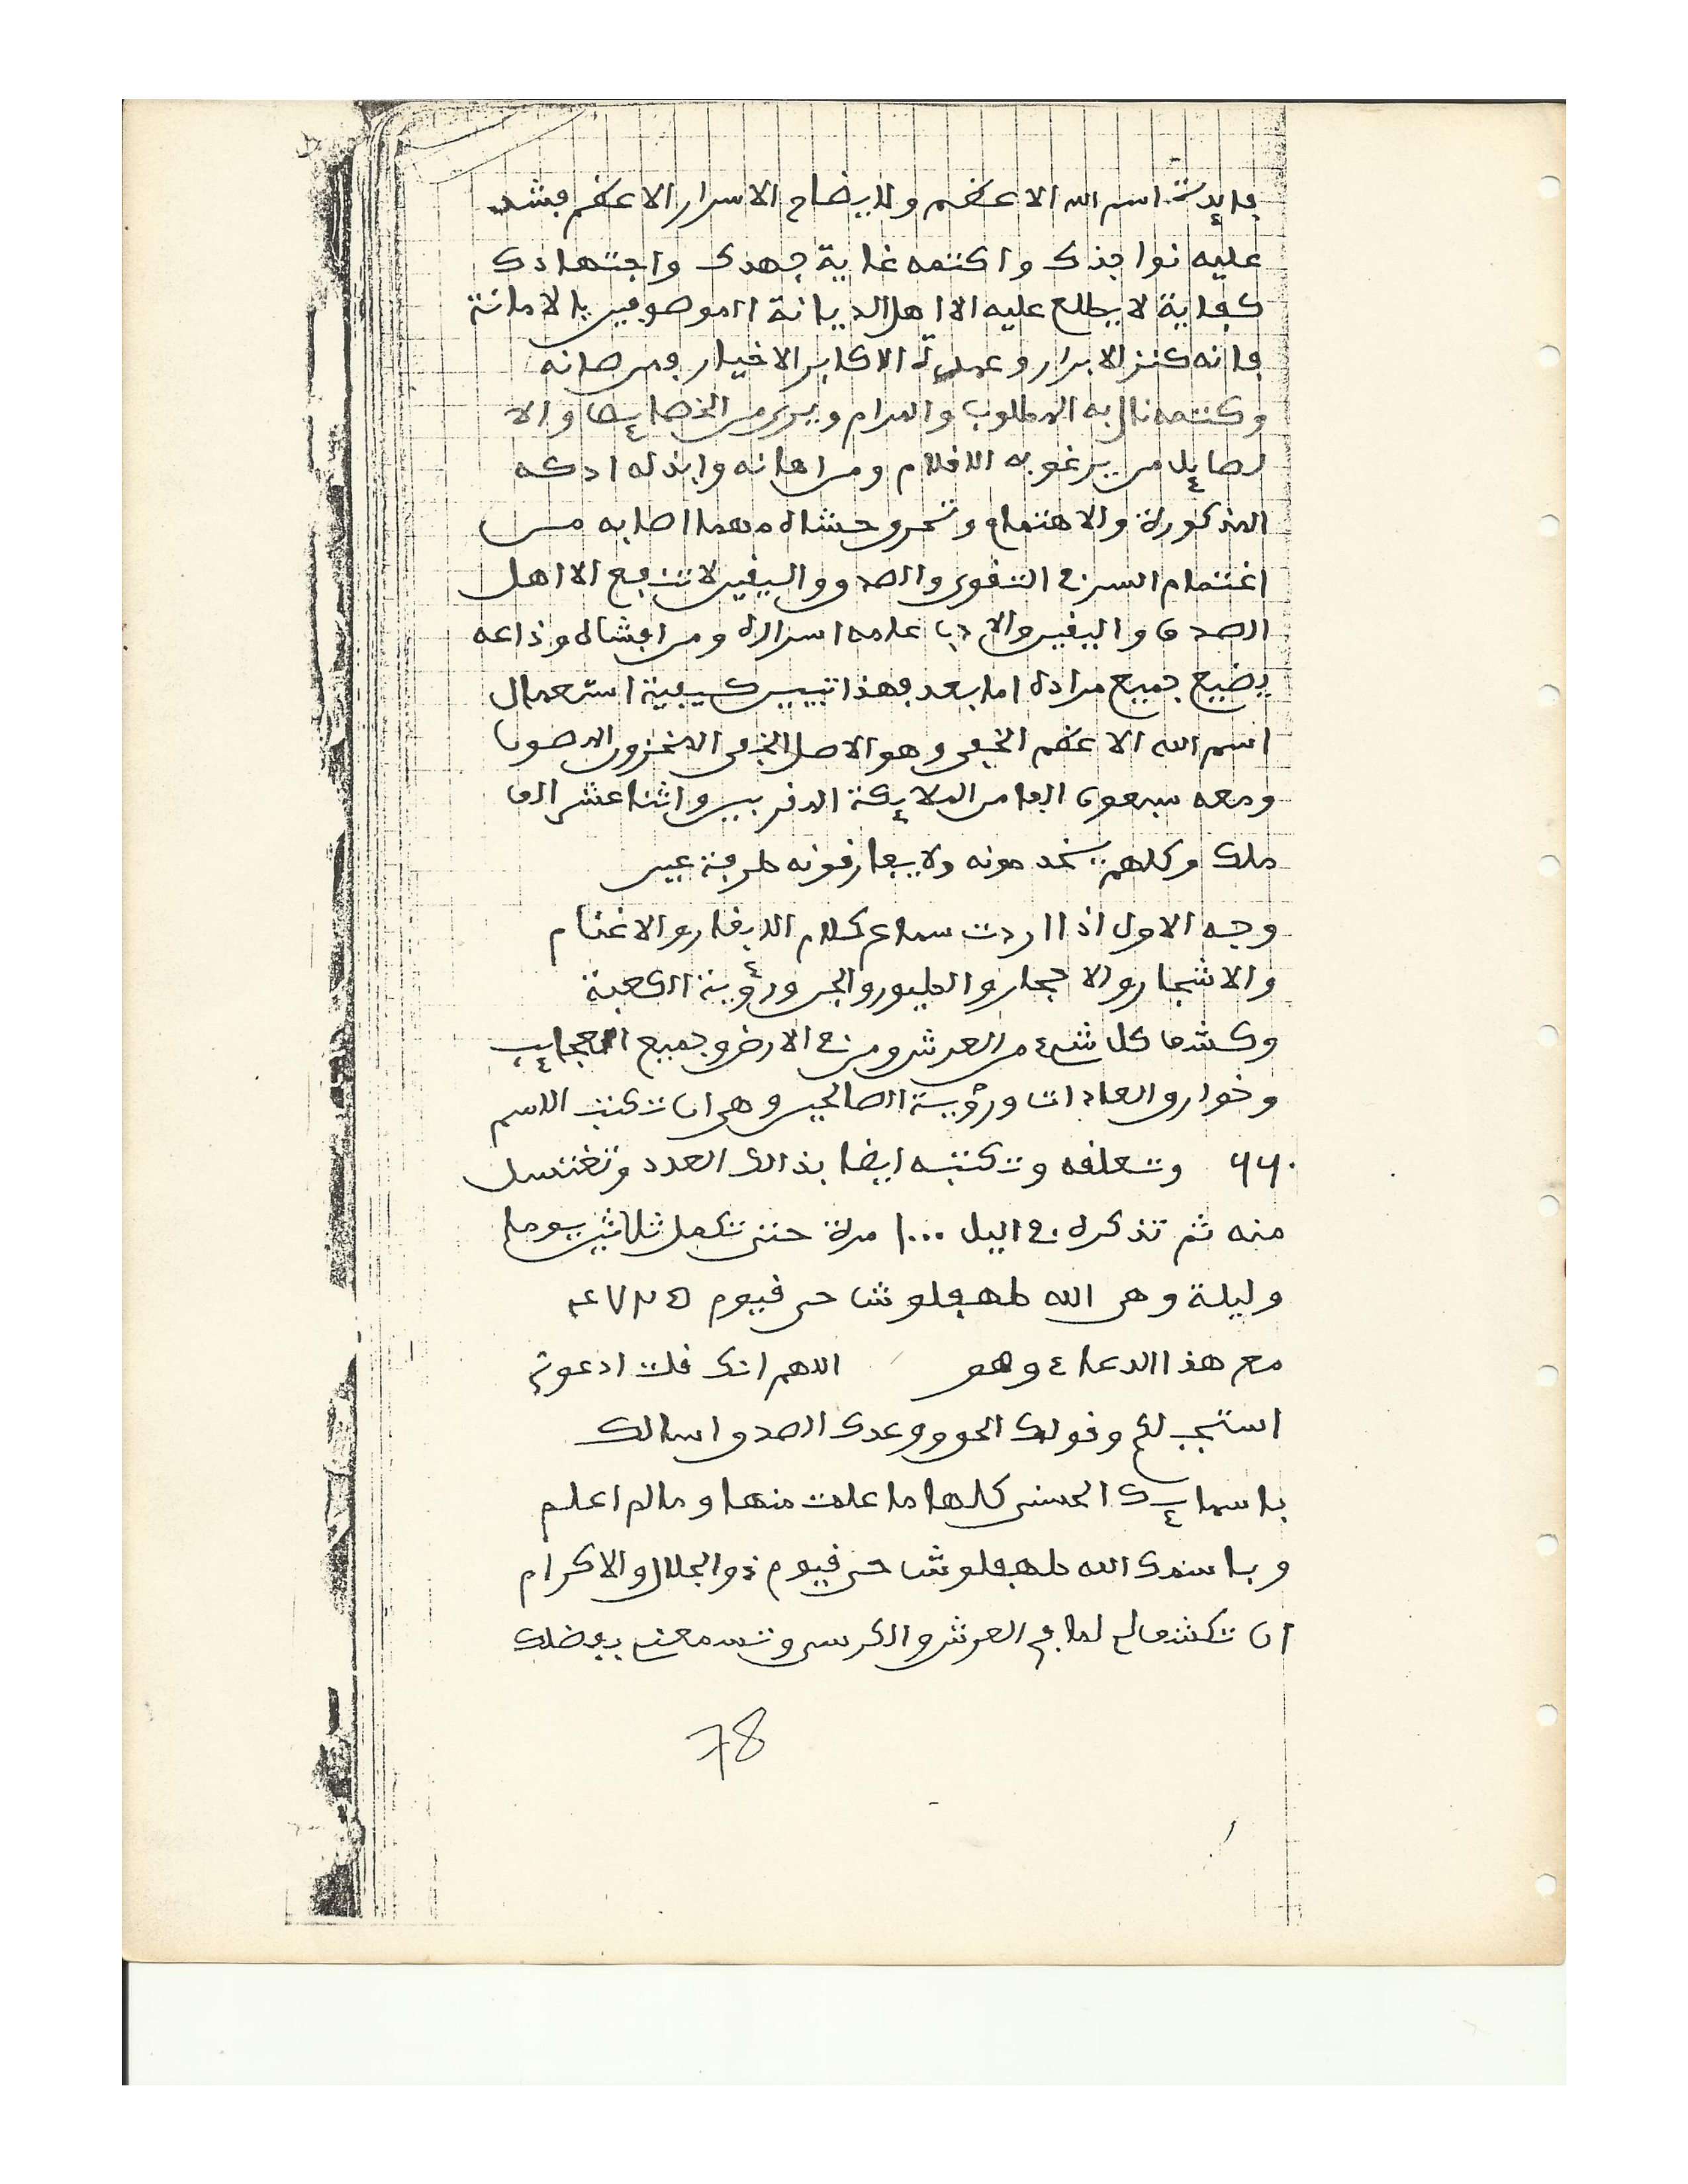 فايدة اسم الله الاعظم ولايضاح الاسرار الاعظم فشد
عليه نواجذك واكتمه غاية جهدك واجتهادك
كفاية لا يطلع عليه الا اهل الديانة الموصوفين بالامانة
فانه كنز الابرار وعمدة الاكابر الاخيار فمن صانه
وكتمه نال به المطلوب والمرام ويرى من الخصايص والا
من اهانه وابذله
المذكورة والاهتمام مهما اصابه من
اغتنام السر في التقوى والصدق واليقين لا تنفع الا اهل
الصدق واليقين اسراره ومن افشاه وذاعه
يضيع جميع مراده اما بعد فهذا تبيين كيفية استعمال
اسم الله الاعظم الخفي وهو الاصل المخزون المصون
ومعه سبعون الفا من الملايكة المقربين واثنا عشر الف
ملك وكلهم يخدمونه ولا يفارقونه طرفة عين
وجه الاول اذا اردت سماع كلام البقار والاغنام
والاشجار والاحجار والطيور والجن ورؤية الكعبة
وكشف كل شيء من العرش ومن في الارض وجميع العجايب
وخوارق العادات ورؤية الصالحين وهي ان تكتب الاسم
٦٦٠ وتعلقه وتكتبه ايضا بذالك العدد وتغتسل
منه ثم تذكره في اليل ١٠٠٠ مرة حتى تكمل ثلاثين يوما
وليلة وهي الله طهفلوش حي قيوم
مع هذا الدعاء وهو اللهم انك قلت ادعوني
استجب لكم وقولك الحق ووعدك الصدق اسالك
باسمايك الحسنى كلها ما علمت منها وما لم اعلم
وباسمك الله طهفلوش حي قيوم ذو الجلال والاكرام
ان تكشف لي لما في العرش والكرسي وتسمعني بفضلك
78